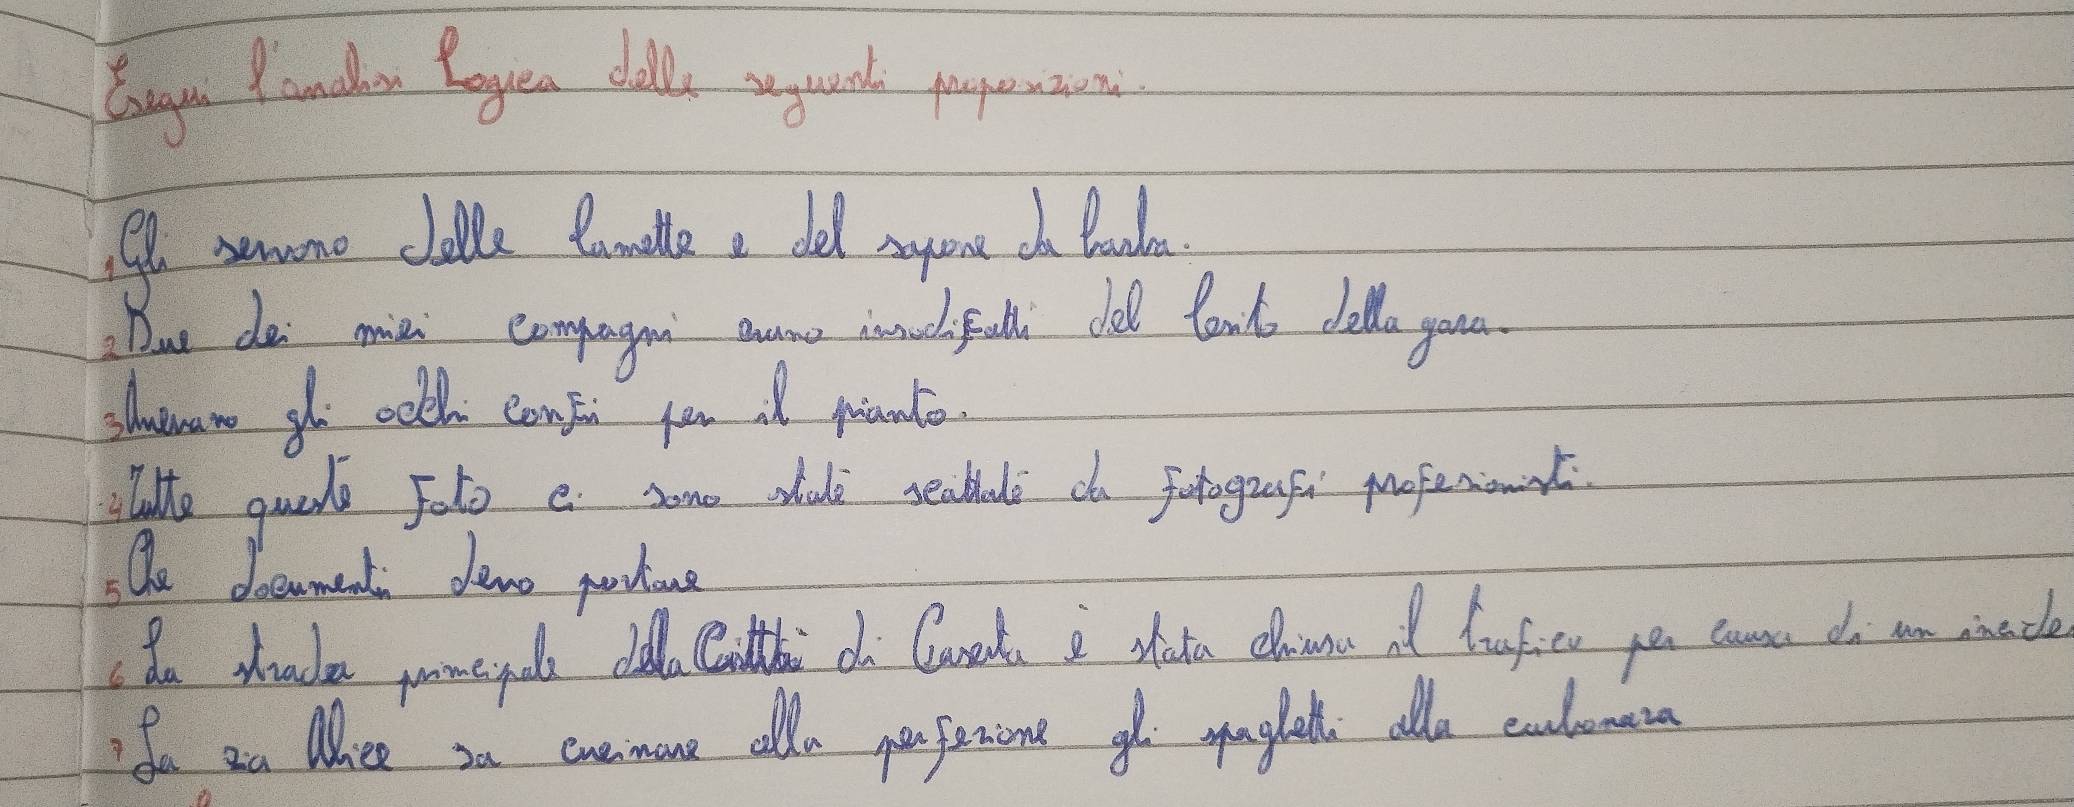 Esegui l'analisi logica delle seguenti proposizioni.
1 Gli servono delle lamette e del sapone da barba.
2 Due dei miei compagni erano insodisfatti del lento della gara.
3 Avevano gli occhi confi per il pianto.
4 Tutte queste foto ci sono state scattate da fotografi profesionisti.
5 Che documenti devo portare
6 La strada principale della Città di Caserta è stata chiusa il trafico per causa di un incide
7 La zia Alice sa cucinare alla perfezione gli spaghetti alla carbonara